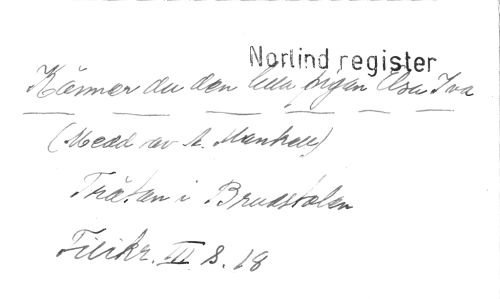 Norlind register
Känner du den lilla pigan Elsa Iva
(Medd av A. Mankell)
Trätan i Brudstolen
Filikr. III S. 18